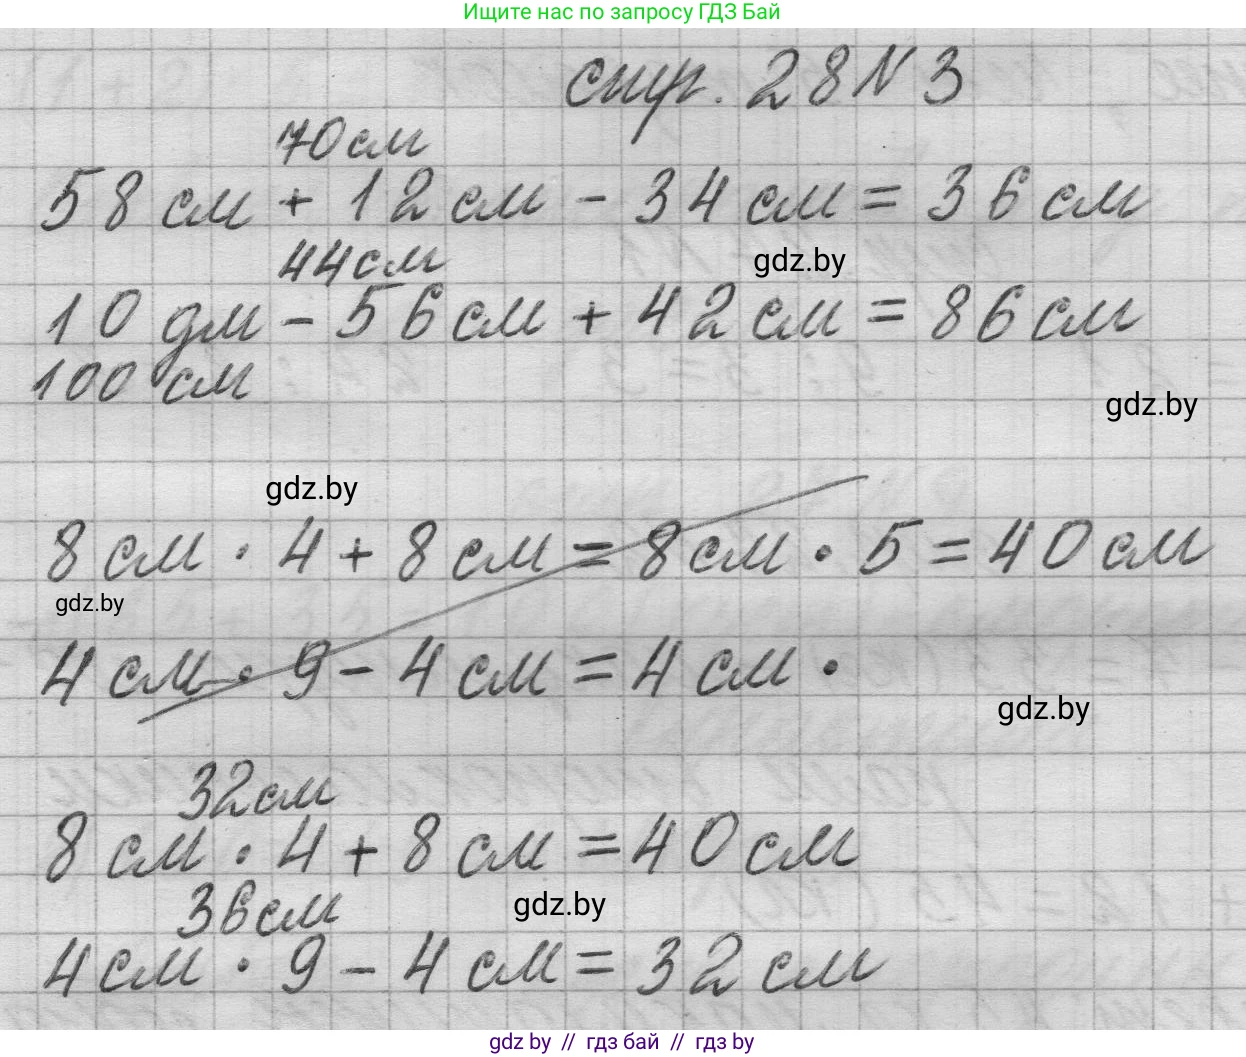 Ищите нас по запросу ГДЗ Бай
стр. 28 N 3
70 см
58 см + 12 см - 34 см = 36 см
44 см
gdz.by
10 дм - 56 см + 42 см = 86 см
100 см
gdz.by
gdz.by
8 см · 4 + 8 см = 8 см · 5 = 40 см
gdz.by
4 см · 9 - 4 см = 4 см ·
gdz.by
32 см
8 см · 4 + 8 см = 40 см
36 см
gdz.by
4 см · 9 - 4 см = 32 см
gdz by // гдз бай // gdz by